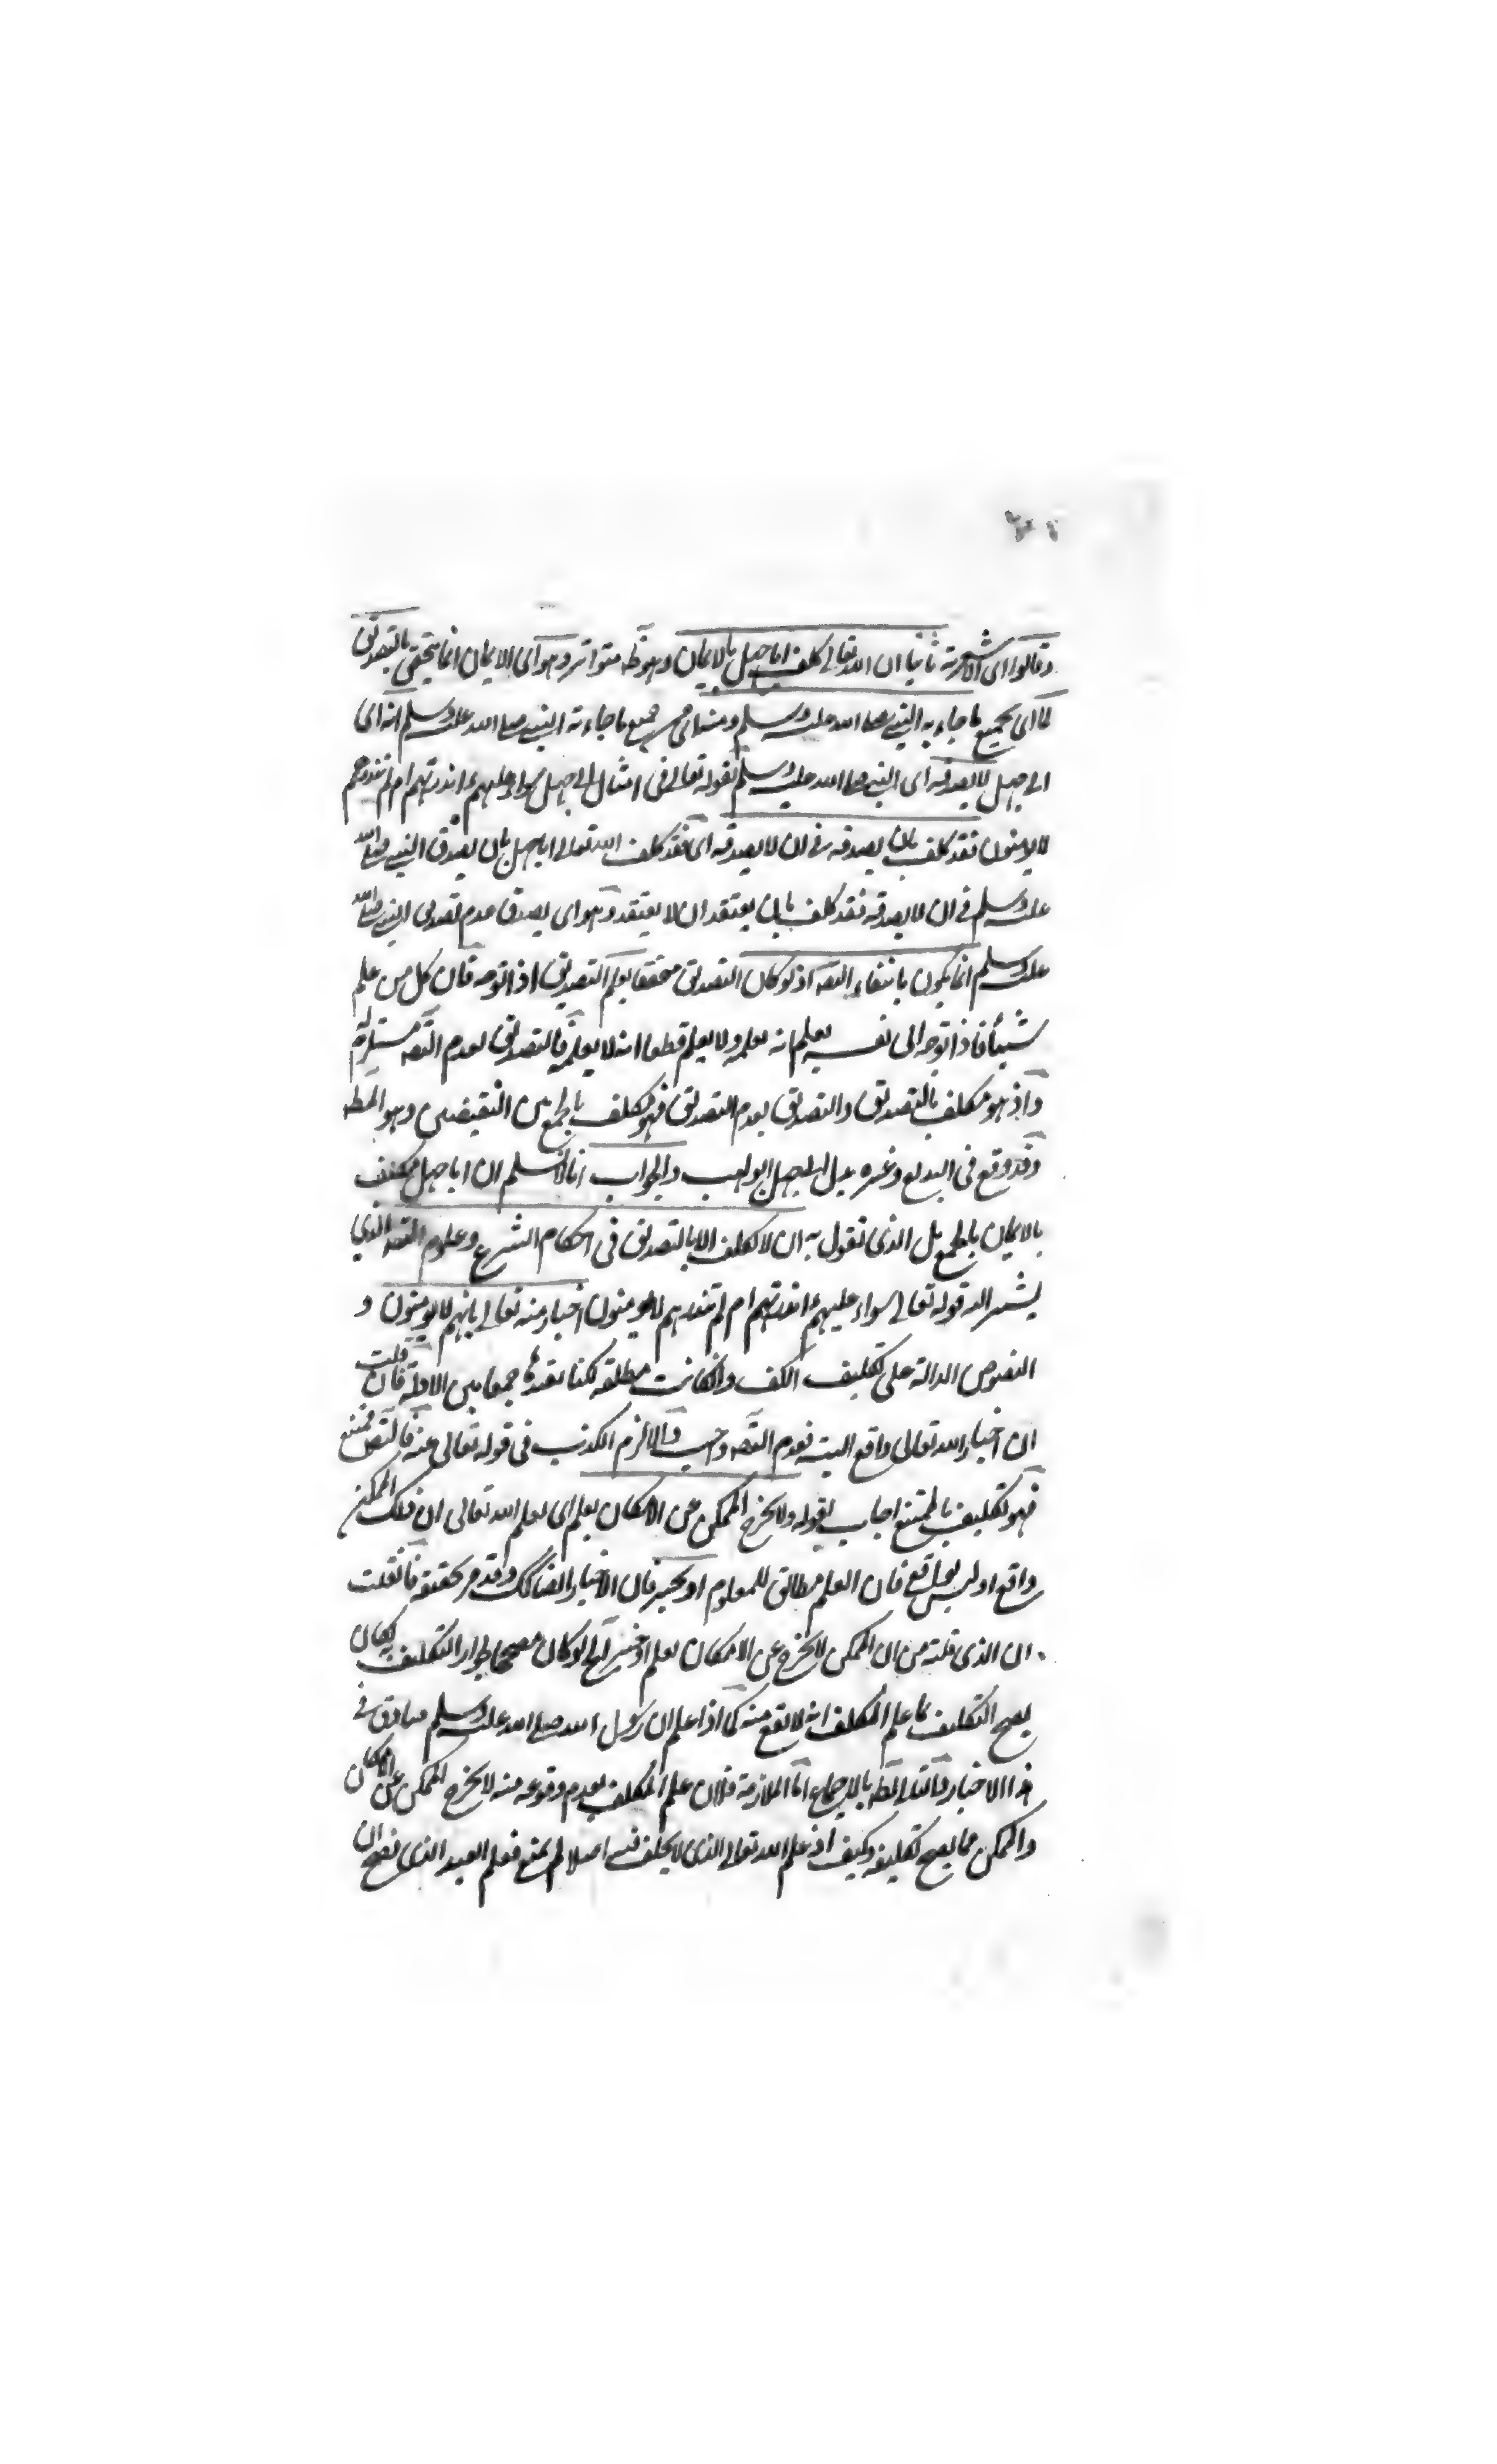 وقالوا اى الاشعرية ثانيا ان الله تعالى كلف ابا جهل بالايمان وهو متواتر وهو اى الايمان انما يتحقق بالتصديق
اى بجميع ما جاء به النبى صلى الله عليه وسلم ومنه اى من جميع ما جاء به النبى صلى الله عليه وسلم انه اى
ابى جهل لا يصدقه اى النبى صلى الله عليه وسلم لقوله تعالى فى امثال ابى جهل سواء عليهم ءانذرتهم ام لم تنذرهم
لا يؤمنون فقد كلف بان يصدقه فى ان لا يصدقه اى فقد كلف الله تعالى ابا جهل بان يصدق النبى صلى الله
عليه وسلم فى ان لا يصدقه فقد كلف بان يعتقد ان لا يعتقد وهو اى يصدق عدم تصديق النبى صلى الله
عليه وسلم انما يكون بانتفاء التصه اذ لو كان التصديق محققا يعلم التصديق اذا توجه فان كل من علم
شيئا فاذا توجه الى نفسه يعلم انه يعلمه ولا يعلم قطعا انه لا يعلمه فالتصديق بعدم التصه مستلزم له
واذ هو مكلف بالتصديق والتصديق بعدم التصديق فهو مكلف بالجمع بين النقيضين وهو المط
وقد وقع فى البديع وغيره بدل ابى جهل ابو لهب والجواب انا لا نسلم ان ابا جهل مكلف
بالايمان بالجميع بل الذى نقول به ان لا تكليف الا بالتصديق فى احكام الشرع وعدم التصه الذى
يشير اليه قوله تعالى سواء عليهم ءانذرتهم ام لم تنذرهم لا يؤمنون اخبار منه تعالى بانهم لا يؤمنون و
النصوص الدالة على تكليف الكف وان كانت مطلقة لكنا نقيدها جمعا بين الادلة فان قلت
ان اخبار الله تعالى واقع البتة فعدم التصه واجب والا لزم الكذب فى قوله تعالى عنه فالتص ممتنع
فهو تكليف بالممتنع اجاب بقوله ولا يخرج الممكن عن الامكان بعلم اى بعلم الله تعالى ان ذلك الممكن
واقع او ليس بواقع فان العلم مطابق للمعلوم او بخبر فان الاخبار ايضا كك وقد مر تحقيقه فان قلت
ان الذى قلته من ان الممكن لا يخرج عن الامكان بعلم او خبر آه لو كان مصححا لجواز التكليف لكان
يصح التكليف بما علم المكلف انه لا يقع منه كما اذا علم ان رسول الله صلى الله عليه وسلم صادق فى
هذا الاخبار والتالى بط بالاجماع اما الملازمة فلان علم المكلف بعدم وقوعه منه لا يخرج الممكن عن الامكان
والممكن مما يصح تكليفه وكيف اذ علم الله تعالى الذى لا يخلف فيه اصلا لم يمنع فعلم العبد الذى يصح ان